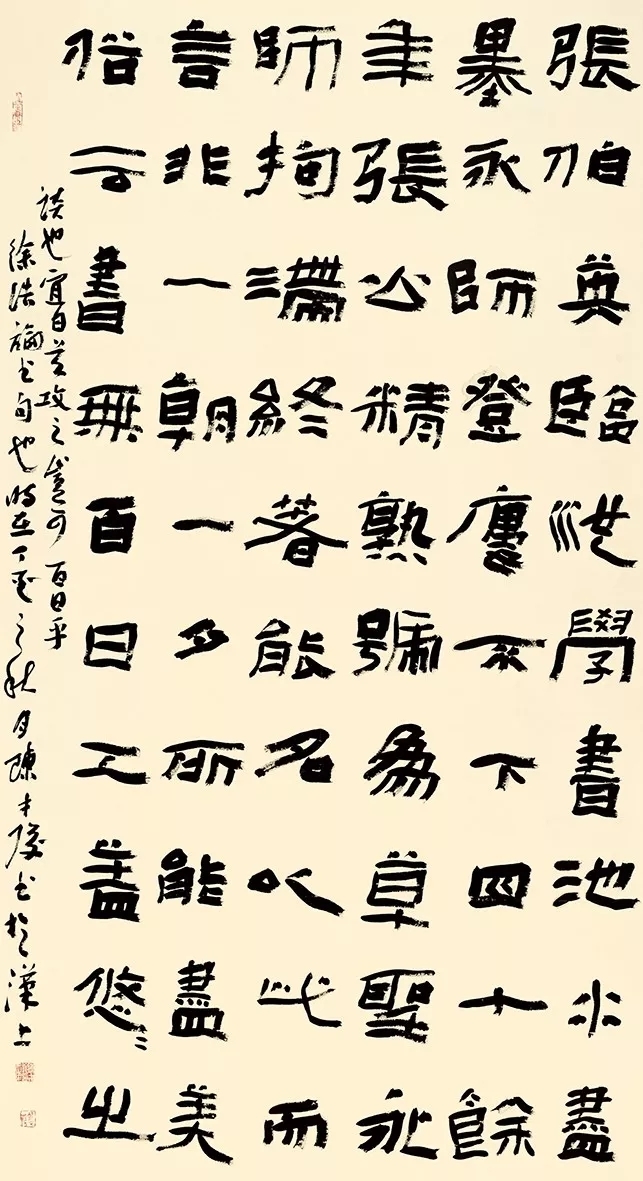 張伯英臨池學書池水盡
墨永師登廔不下四十餘
年張公精熟號為草聖永
師拘滯終著能名以此而
言非一朝一夕所能盡美
俗云書無百日工蓋悠〻之
談也宜白首攻之豈可百日乎
徐浩論书句也時在丁亥之秋月陳才书於漢上